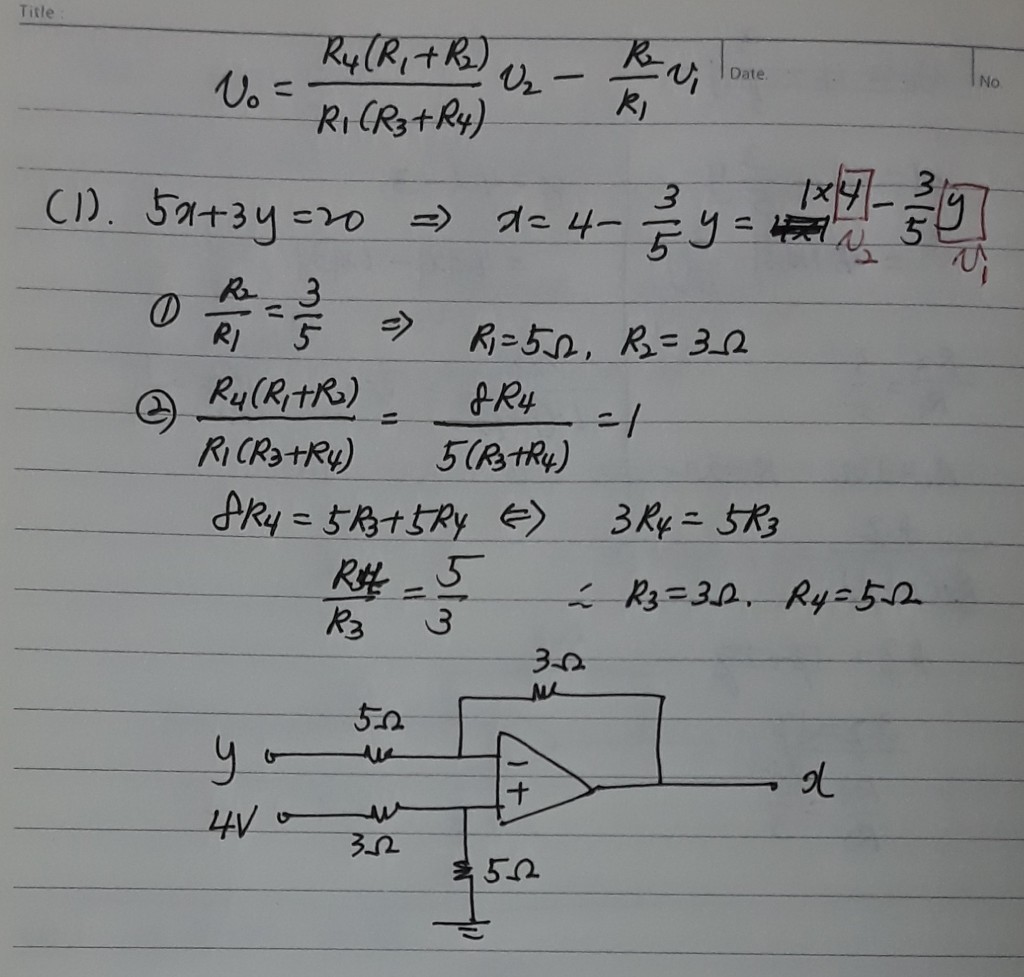 Title
v₀ = R₄(R₁+R₂) / R₁(R₃+R₄) v₂ − R₂/R₁ v₁
Date.
No
(1). 5x+3y=20 ⇒ x = 4 − 3/5 y = 1×4 − 3/5 y
v₂ v₁
① R₂/R₁ = 3/5 ⇒ R₁=5Ω, R₂=3Ω
② R₄(R₁+R₂) / R₁(R₃+R₄) = 8R₄ / 5(R₃+R₄) = 1
8R₄ = 5R₃+5R₄ ⇔ 3R₄ = 5R₃
R₄/R₃ = 5/3 ∴ R₃=3Ω. R₄=5Ω
3Ω
5Ω
y − x
4V +
3Ω
5Ω